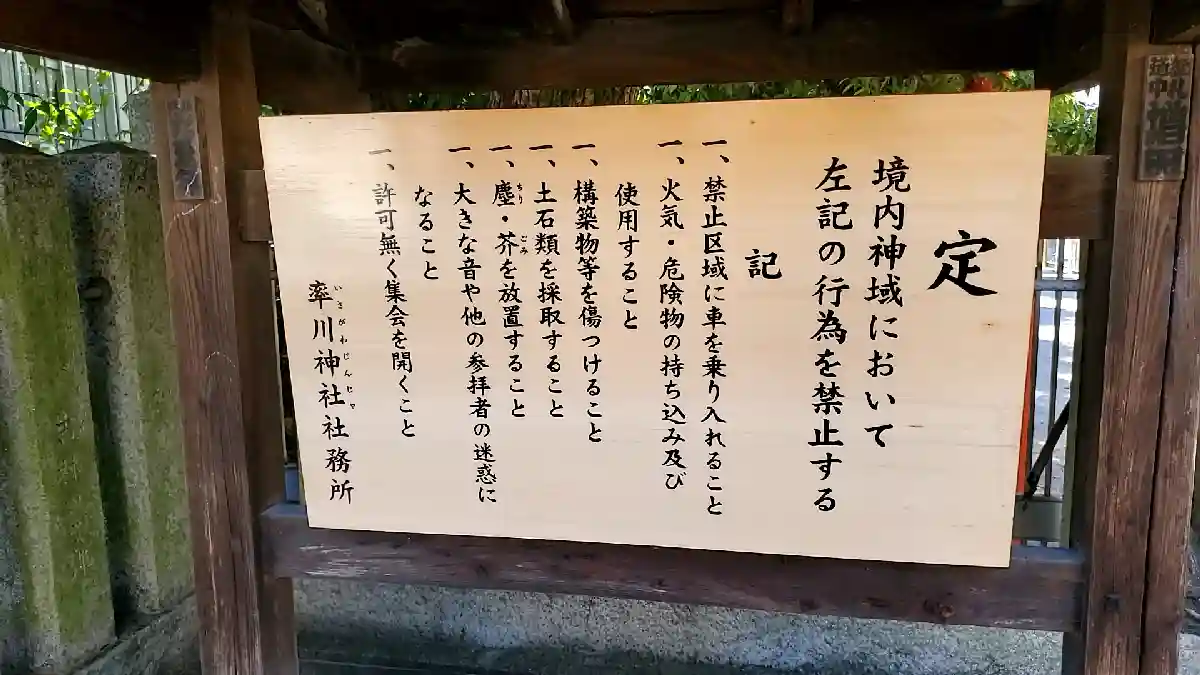 定
境内神域において
左記の行為を禁止する
記
一、禁止区域に車を乗り入れること
一、火気・危険物の持ち込み及び
使用すること
一、構築物等を傷つけること
一、土石類を採取すること
一、塵・芥を放置すること
ちり
ごみ
一、大きな音や他の参拝者の迷惑に
なること
一、許可無く集会を開くこと
率川神社社務所
いさがわじんじゃ